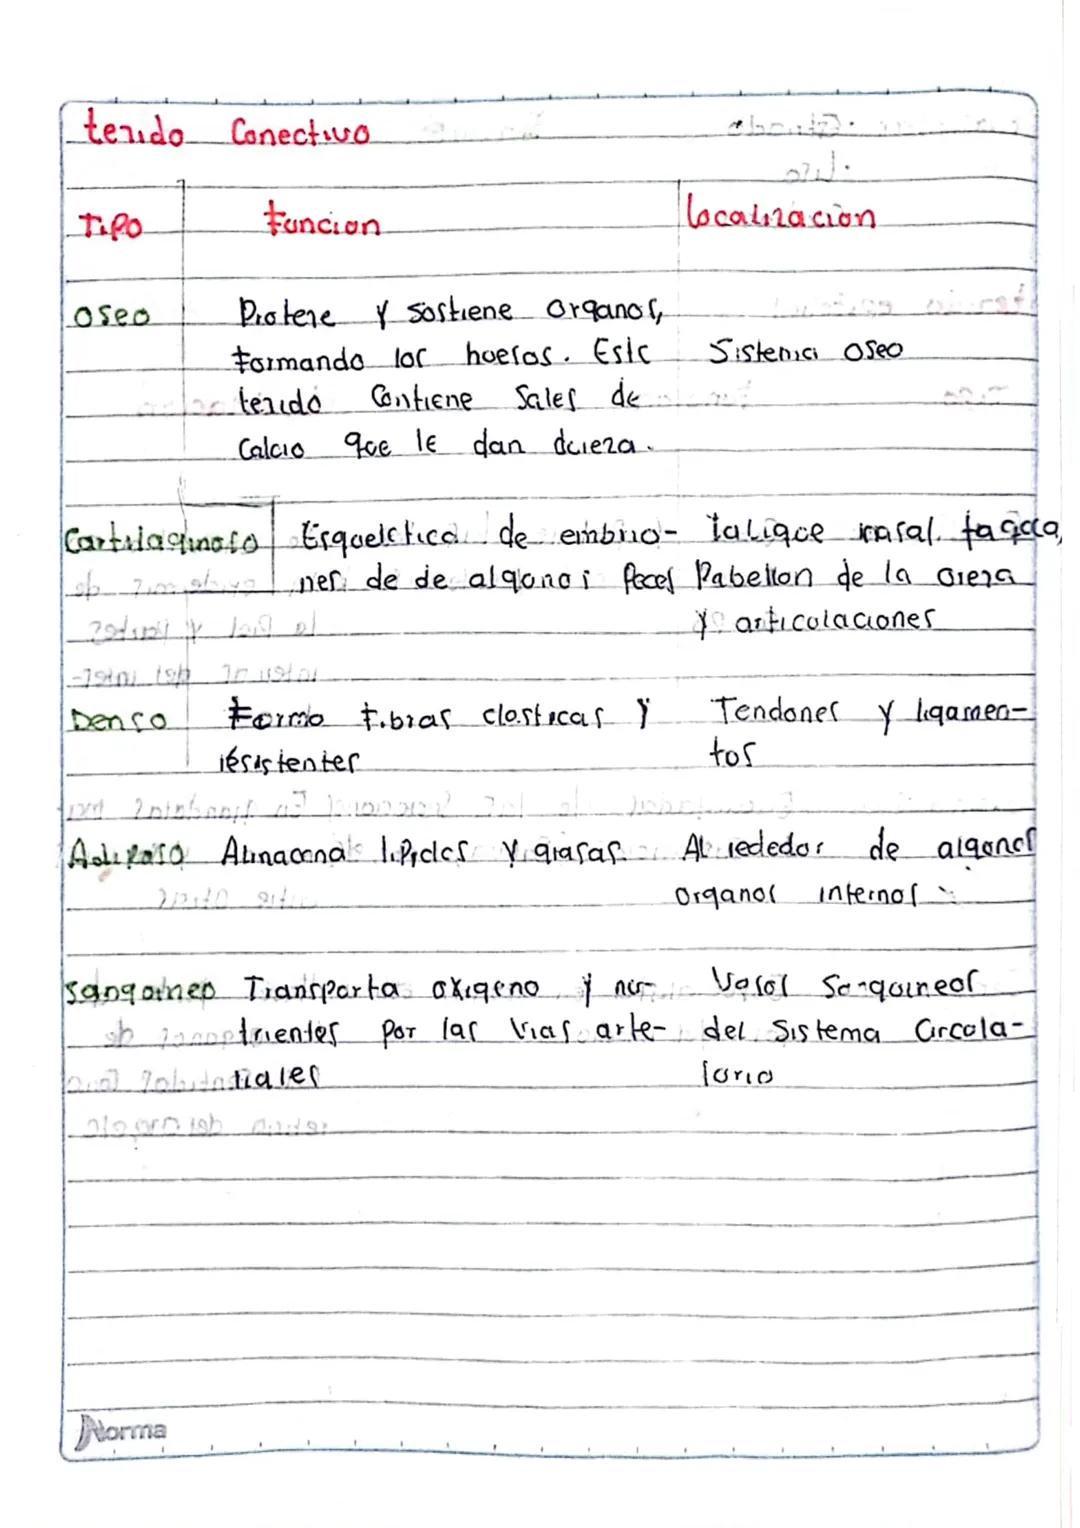 tejido Conectivo
Tipo función localizacion
Oseo Protege y sostiene organos,
formando los huesos. Este Sistema Oseo
tejido Contiene Sales de
Calcio que le dan dureza.
Cartilaginoso Esquelética de embrio- Tabique nasal. traquea,
nes de de algunos peces Pabellon de la oreja
y articulaciones
Denso Forma fibras elasticas y Tendones y ligamen-
résistentes tos
Adiposo Almacena lipidos y grasas. Al rededor de algunos
organos internos
Sanguineo Transporta oxigeno y nu- Vasos Sanguineos
trientes por las vias arte- del Sistema Circula-
riales torio
Norma